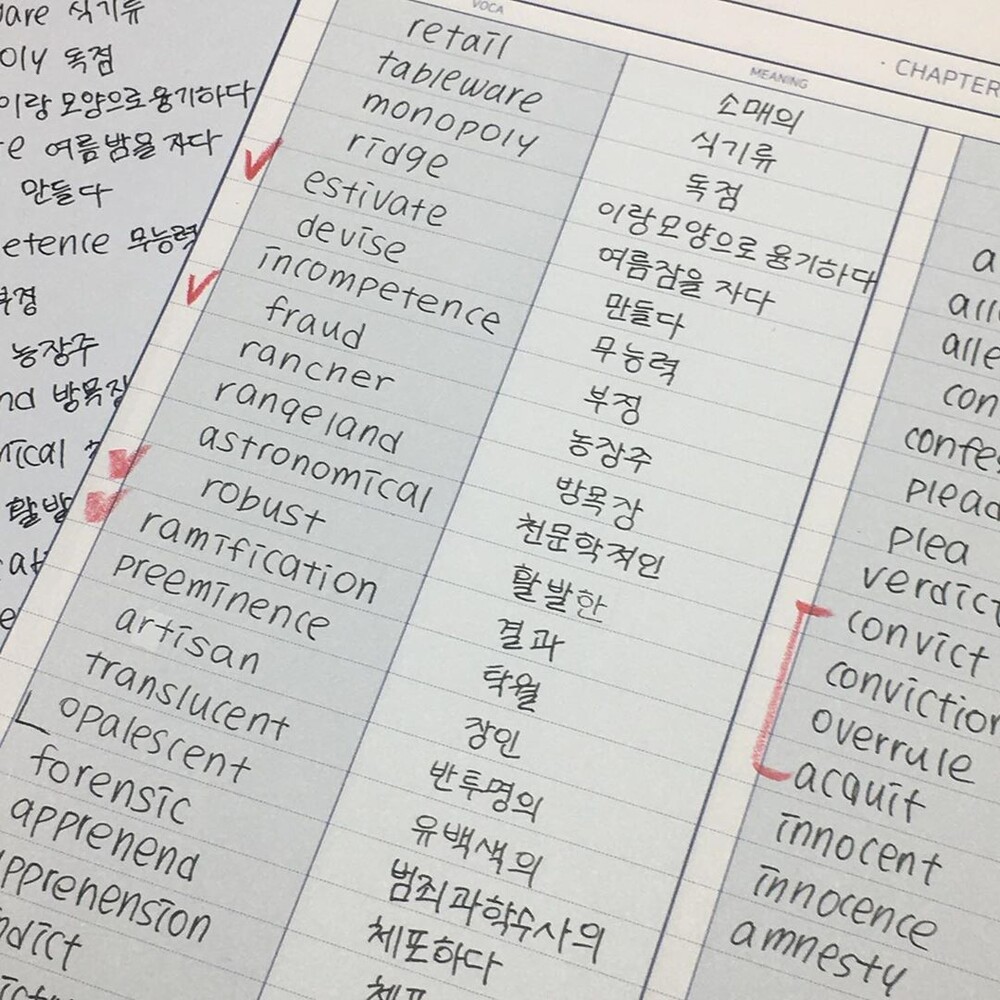 식기류
독점
이랑 모양으로 융기하다
여름밤을 자다
만들다
etence 무능력
농장주
nd 방목장
nical
활발
VOCA MEANING CHAPTER
retail 소매의
tableware 식기류
monopoly 독점
ridge 이랑모양으로 융기하다
estivate 여름잠을 자다
devise 만들다
incompetence 무능력
fraud 부정
rancher 농장주
rangeland 방목장
astronomical 천문학적인
robust 활발한
ramification 결과
preeminence 탁월
artisan 장인
translucent 반투명의
opalescent 유백색의
forensic 범죄과학수사의
apprenend 체포하다
pprehension 체포
ndict
all
alle
con
confe
plead
plea
verdict
convict
conviction
overrule
acquit
innocent
innocence
amnesty